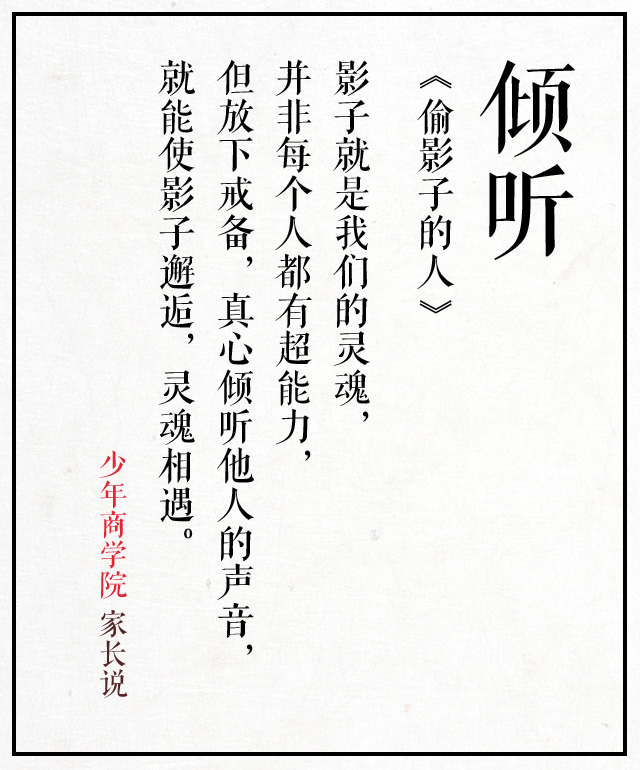 倾听
《偷影子的人》
影子就是我们的灵魂，
并非每个人都有超能力，
但放下戒备，真心倾听他人的声音，
就能使影子邂逅，灵魂相遇。
少年商学院 家长说